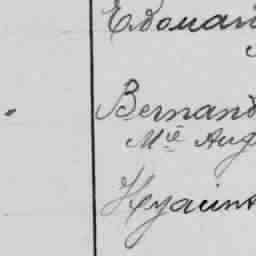 Edouar
Bernard
Mie Aug
Hyacint